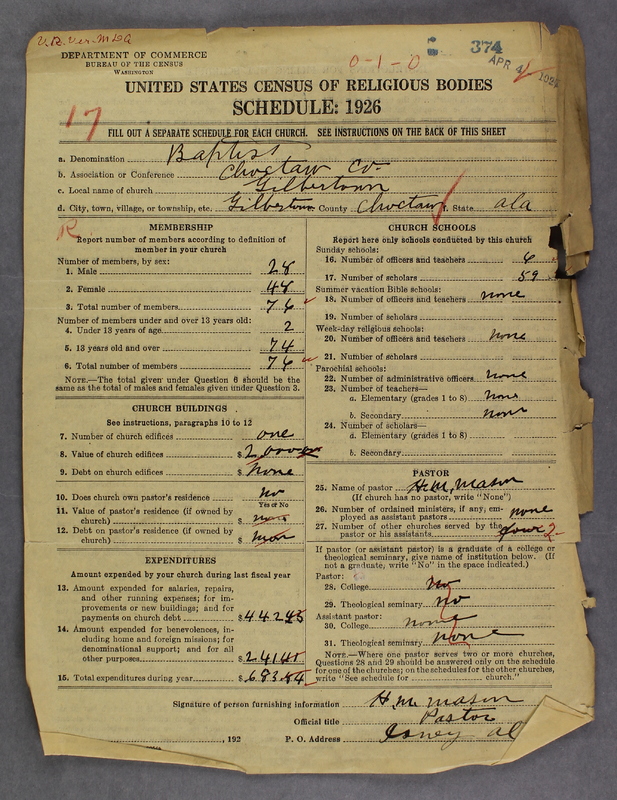 U.B. Ver. M.D.A
DEPARTMENT OF COMMERCE
BUREAU OF THE CENSUS
WASHINGTON
0-1-0
374
APR 4 192
UNITED STATES CENSUS OF RELIGIOUS BODIES
SCHEDULE: 1926
17
FILL OUT A SEPARATE SCHEDULE FOR EACH CHURCH. SEE INSTRUCTIONS ON THE BACK OF THIS SHEET
a. Denomination Baptist
b. Association or Conference Choctaw Co.
c. Local name of church Gilbertown
d. City, town, village, or township, etc. Gilbertown County Choctaw f. State ala
R
MEMBERSHIP
Report number of members according to definition of member in your church
Number of members, by sex:
1. Male 28
2. Female 48
3. Total number of members 76
Number of members under and over 13 years old:
4. Under 13 years of age 2
5. 13 years old and over 74
6. Total number of members 76
NOTE.—The total given under Question 6 should be the same as the total of males and females given under Question 3.
CHURCH BUILDINGS
See instructions, paragraphs 10 to 12
7. Number of church edifices one
8. Value of church edifices $ 2,000
9. Debt on church edifices $ None
10. Does church own pastor's residence No
Yes or No
11. Value of pastor's residence (if owned by church) $ none
12. Debt on pastor's residence (if owned by church) $ non
EXPENDITURES
Amount expended by your church during last fiscal year
13. Amount expended for salaries, repairs, and other running expenses; for improvements or new buildings; and for payments on church debt $ 442
14. Amount expended for benevolences, including home and foreign missions; for denominational support; and for all other purposes $ 241
15. Total expenditures during year $ 683
CHURCH SCHOOLS
Report here only schools conducted by this church
Sunday schools:
16. Number of officers and teachers 6
17. Number of scholars 59
Summer vacation Bible schools:
18. Number of officers and teachers none
19. Number of scholars
Week-day religious schools:
20. Number of officers and teachers none
21. Number of scholars
Parochial schools:
22. Number of administrative officers none
23. Number of teachers—
a. Elementary (grades 1 to 8) none
b. Secondary none
24. Number of scholars—
a. Elementary (grades 1 to 8)
b. Secondary
PASTOR
25. Name of pastor H.M. Mason
(If church has no pastor, write "None")
26. Number of ordained ministers, if any, employed as assistant pastors none
27. Number of other churches served by the pastor or his assistants four 2
If pastor (or assistant pastor) is a graduate of a college or theological seminary, give name of institution below. (If not a graduate, write "No" in the space indicated.)
Pastor:
28. College No
29. Theological seminary No
Assistant pastor:
30. College none
31. Theological seminary none
NOTE.—Where one pastor serves two or more churches, Questions 28 and 29 should be answered only on the schedule for one of the churches; on the schedules for the other churches, write "See schedule for church."
Signature of person furnishing information H. M. Mason
Official title Pastor
, 192 P. O. Address Isney al